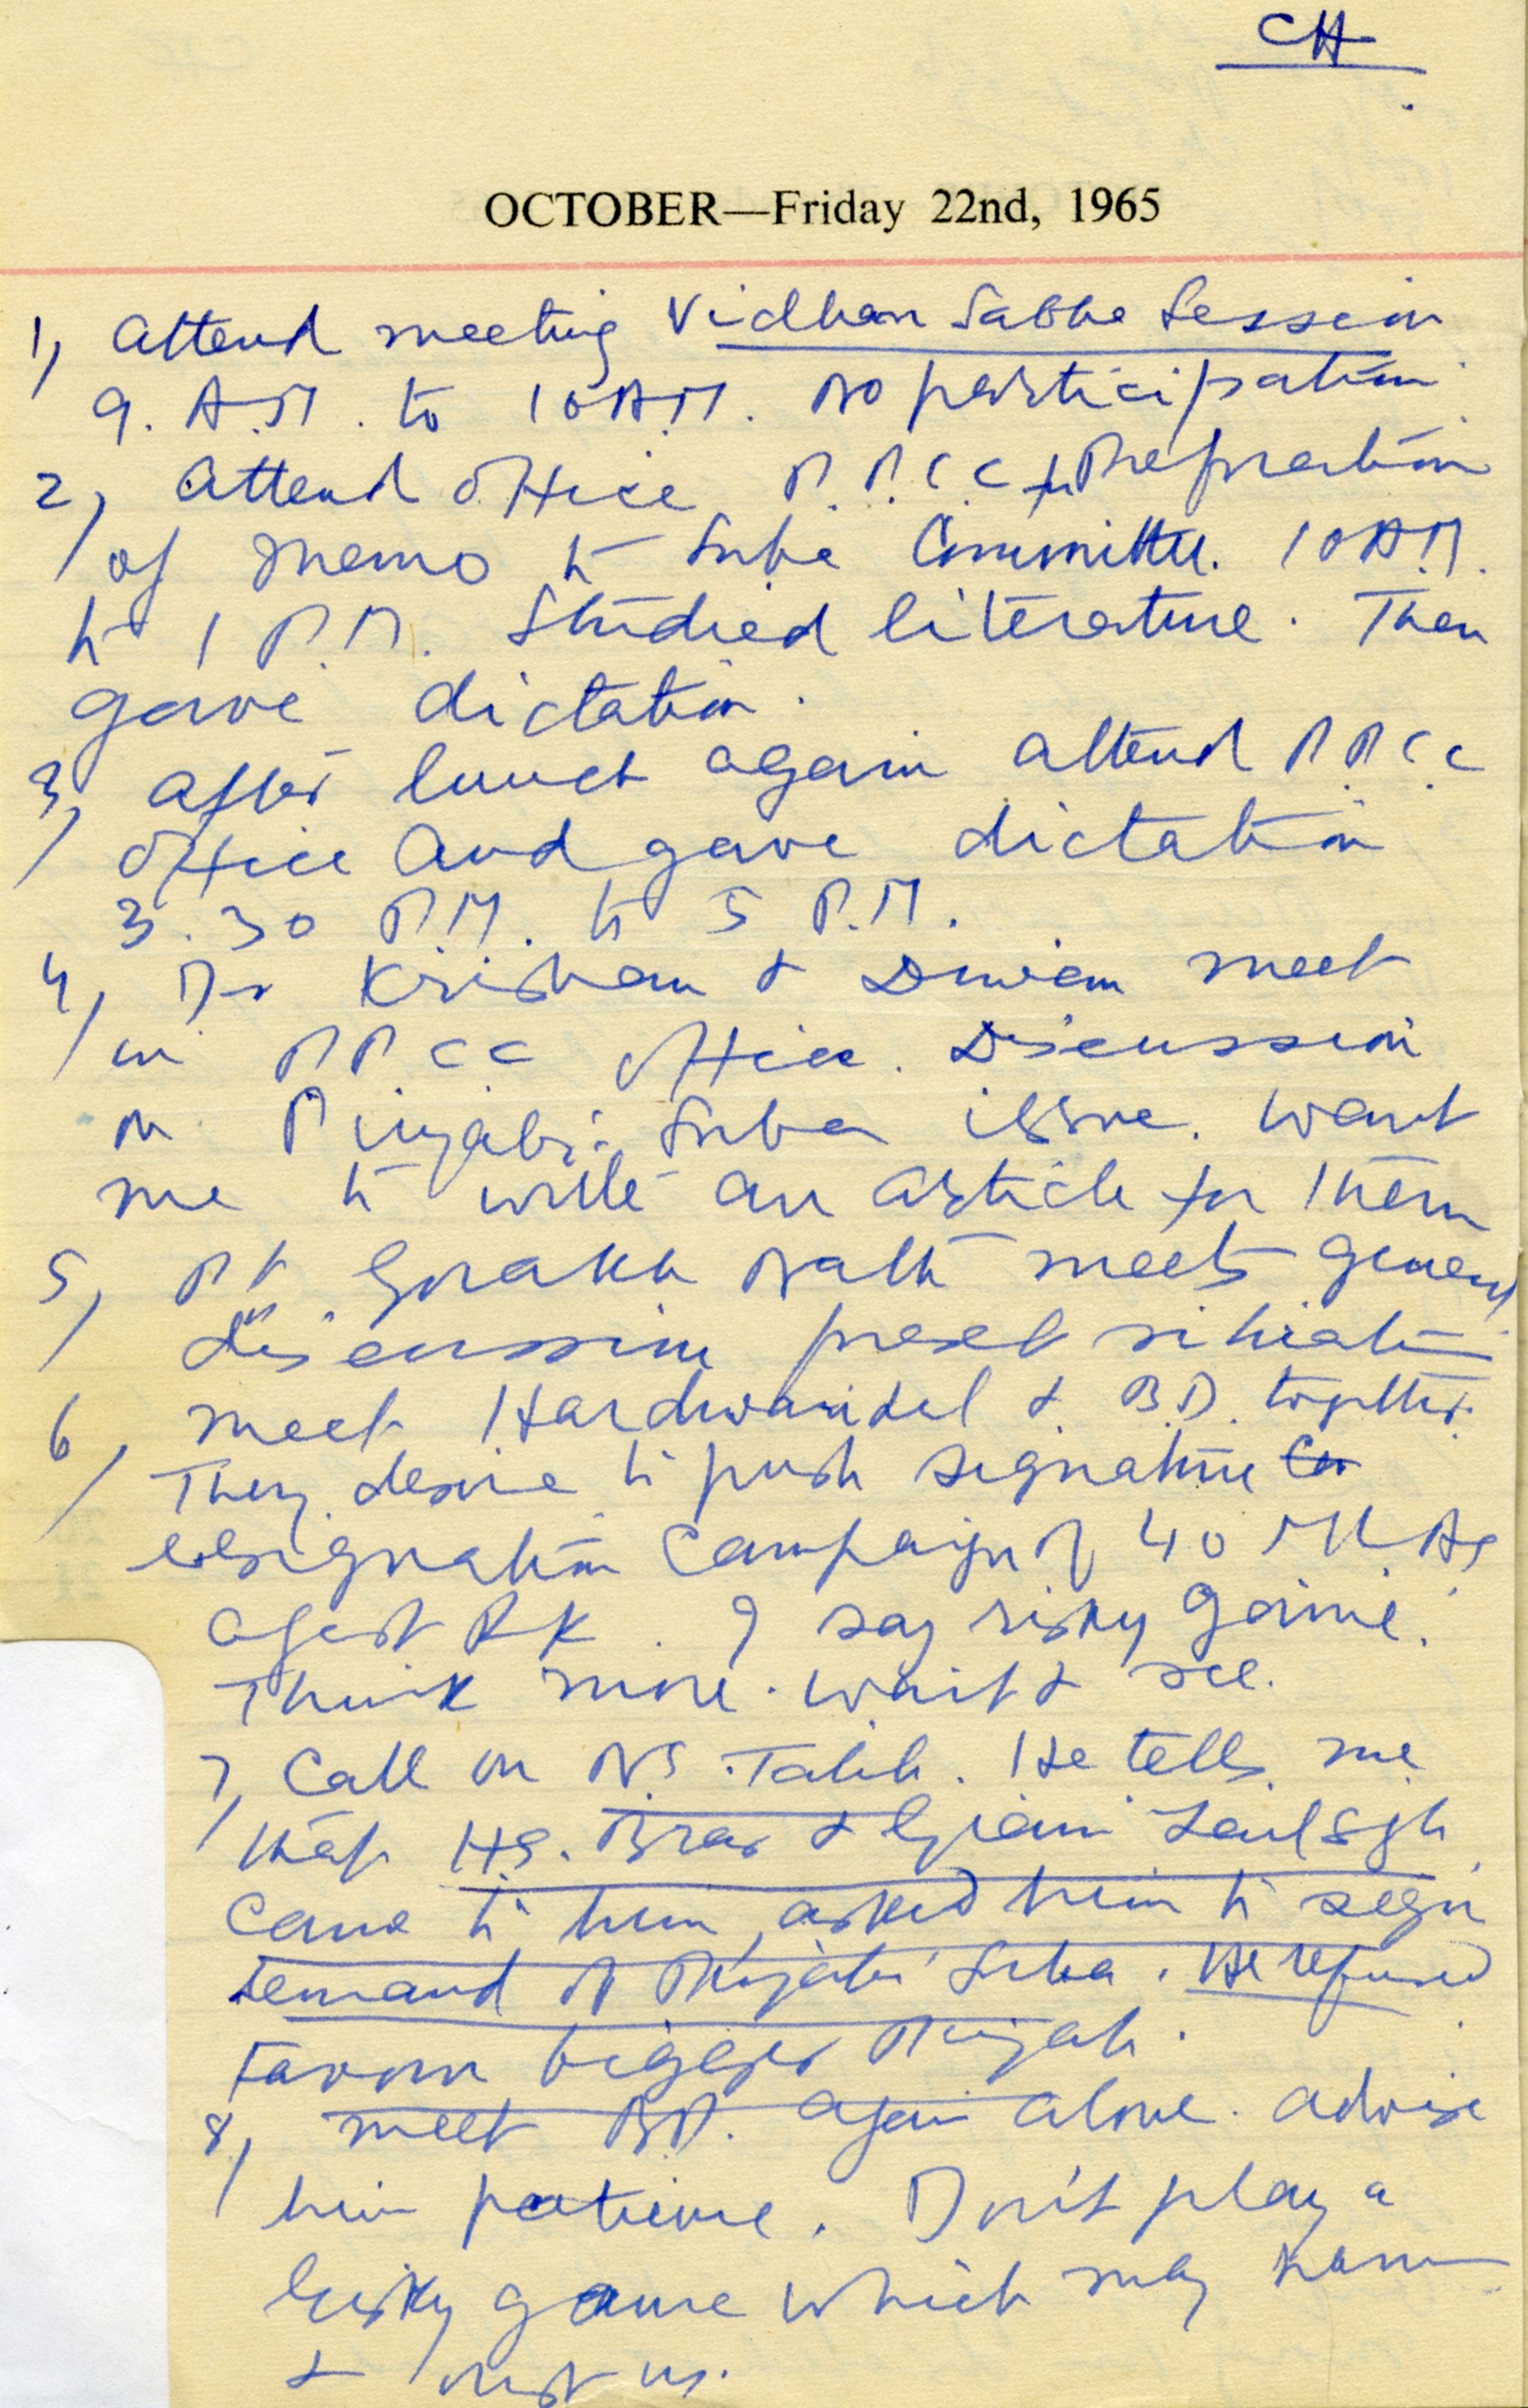 CH
OCTOBER—Friday 22nd, 1965
1, Attend meeting Vidhan Sabha Session
9. A.M. to 10 A.M. No participation.
2, Attend office P.P.C.C for Prepration
of memo to Suba Committee. 10 A.M.
to 1 P.M. Studied literature. Then
gave dictation.
3, After lunch again attend P.P.C.C
office and gave dictation
3.30 P.M. to 5 P.M.
4, Dr Krishan & Diwan meet
in P.P.C.C office. Discussion
on Punjabi Suba issue. Want
me to write an article for them
5, Pt. Gorakh Nath meets general
discussion present situation
6, meet Hardwarilal & B.D. together.
They desire to push signature
resignation campaign of 40 MLAs
agest RK. I say risky game.
Think more. Wait & see.
7, Call on NS. Talib. He tells me
that HS. Brar & Giani Zail Sgh
came to him, asked him to sign
demand of Punjabi Suba. He refused
Favour bigger Punjab.
8, meet BD. again alone. advise
him patience. Don't play a
risky game which may harm
& us.